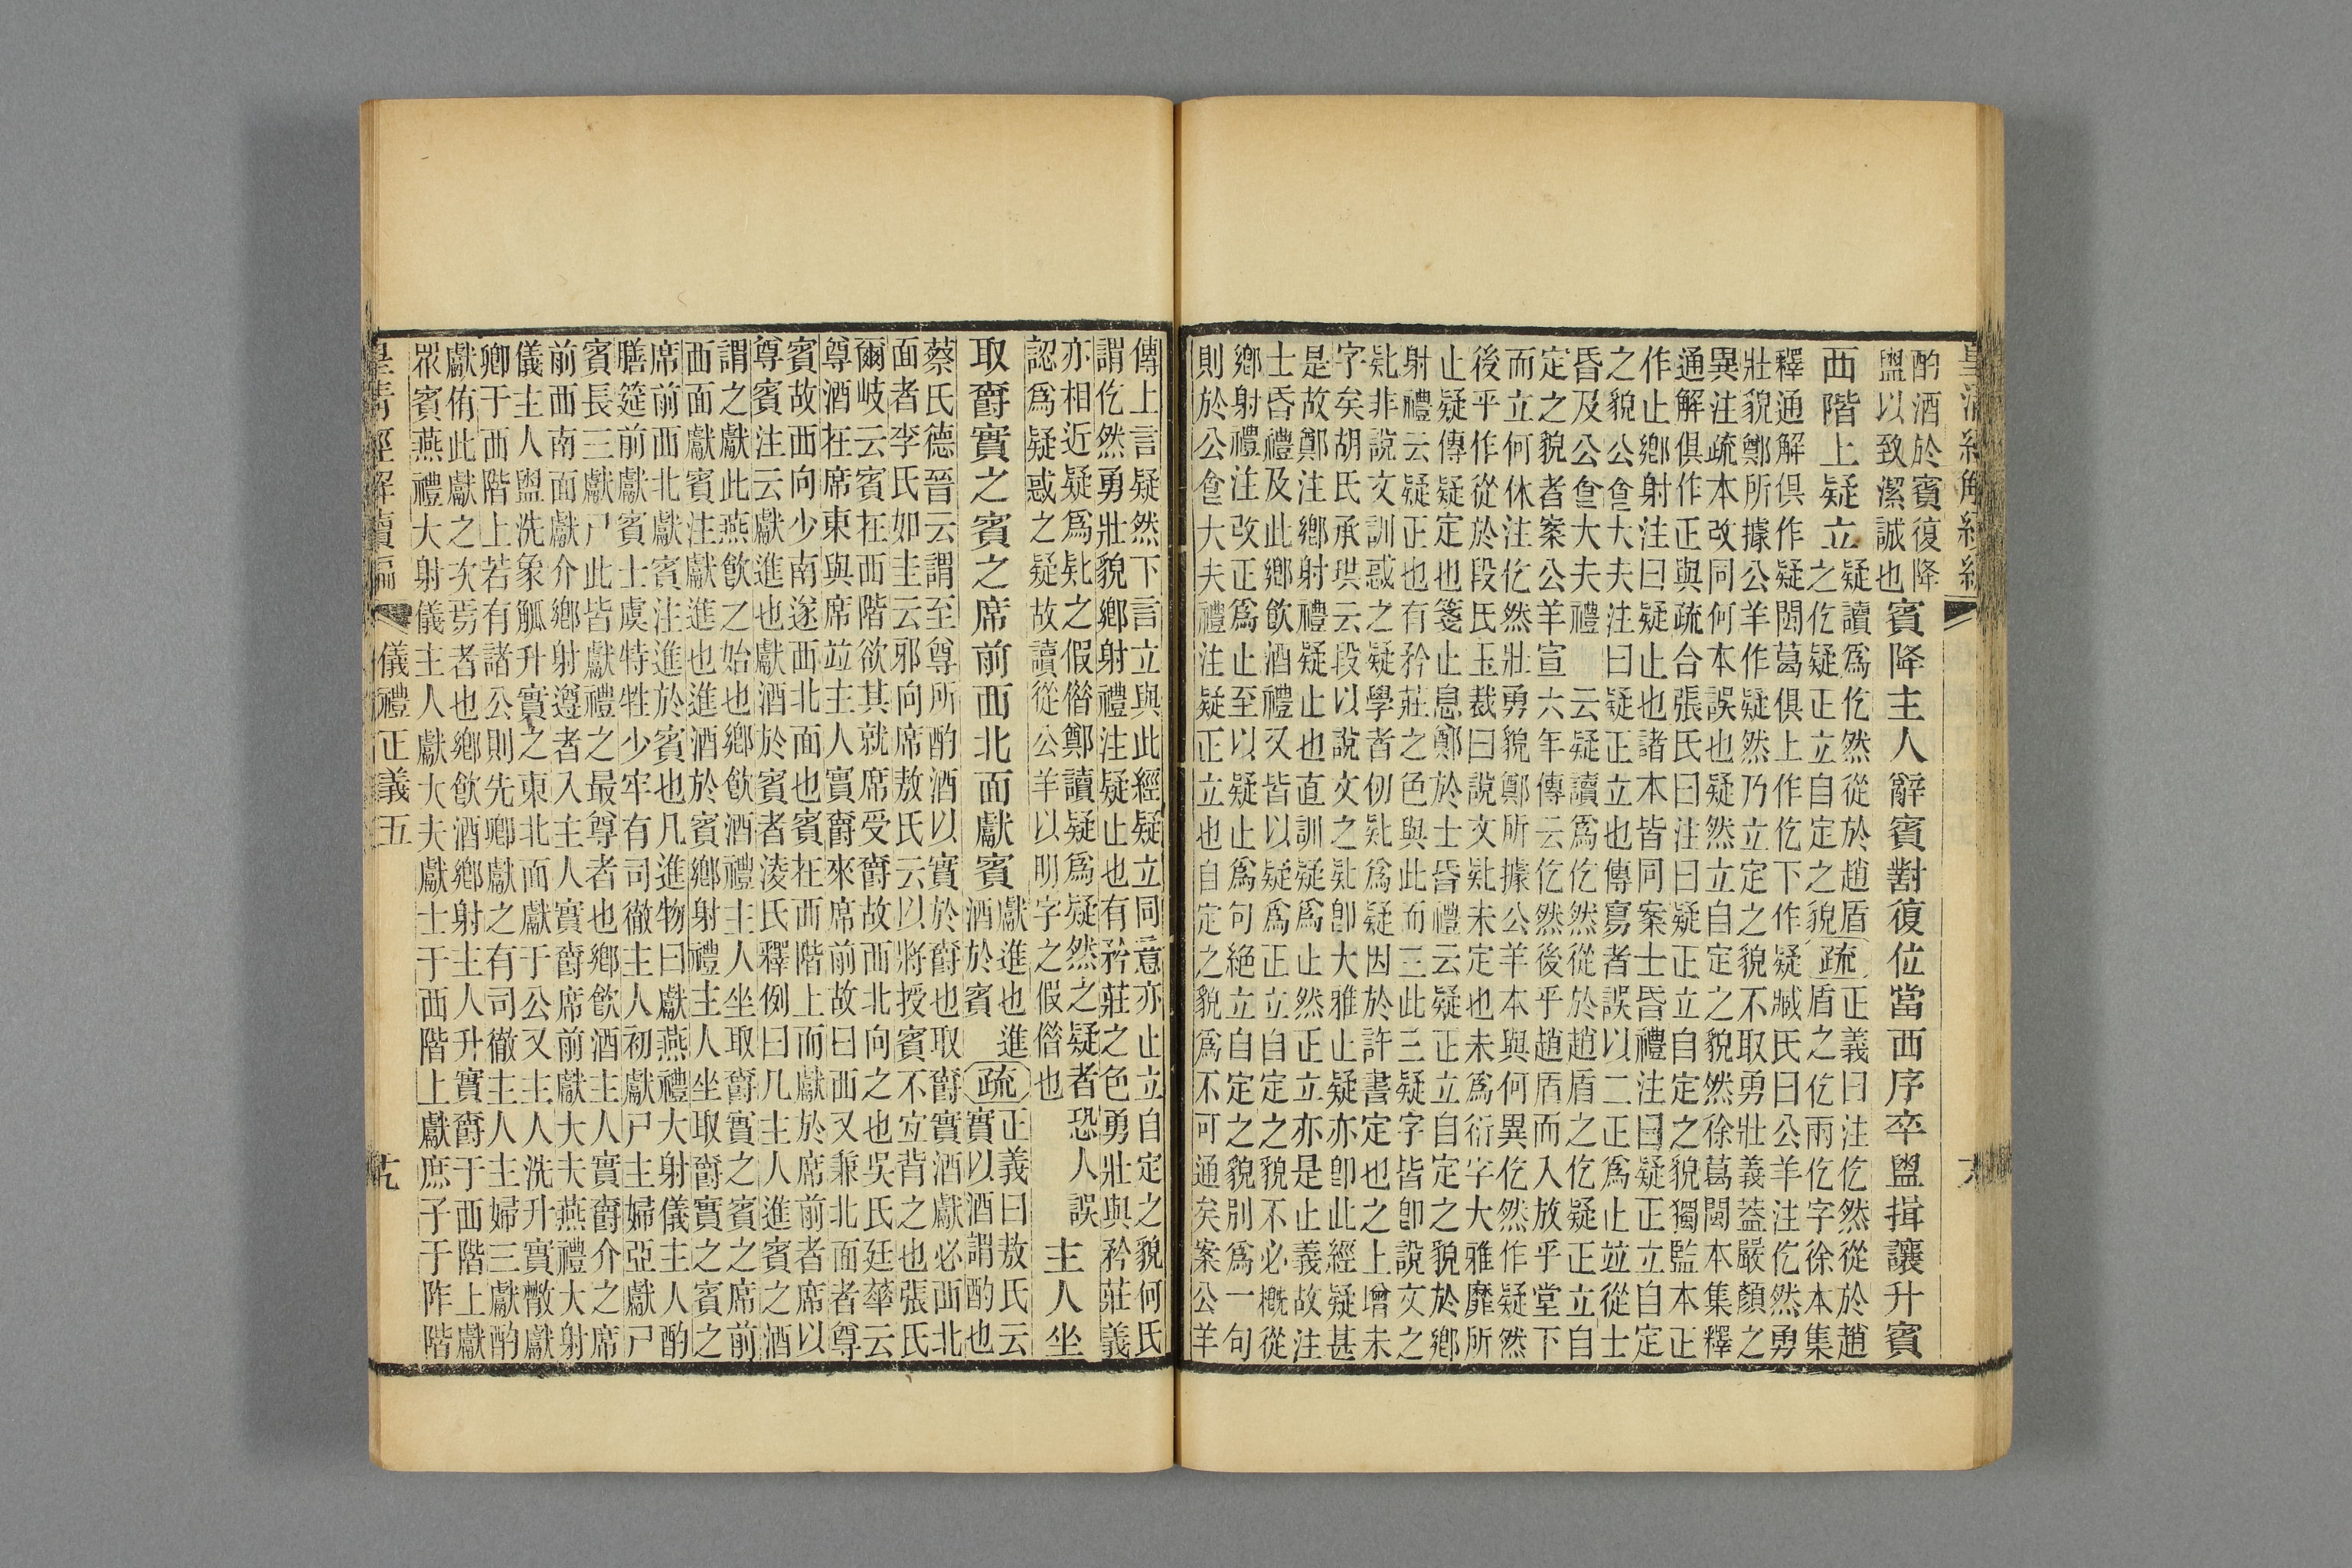 皇清經解續編
酌酒於賓復降
盥以致潔誠也
賓降主人辭賓對復位當西序卒盥揖讓升賓
西階上疑立
疑讀爲仡然從於趙盾
之仡疑正立自定之貌
疏
正義曰注仡然從於趙
盾之仡兩仡字徐本集
釋通解俱作疑閩葛俱上作仡下作疑臧氏曰公羊注仡然勇
壯貌鄭所據公羊作疑然乃立定之貌不取勇壯義蓋嚴顏之
異注疏本改同何本誤也疑然立自定之貌然徐葛閩本集釋
通解俱作正與疏合張氏曰注曰疑正立自定之貌獨監本正
作止鄉射注曰疑止也諸本皆同案士昏禮注曰疑正立自定
之貌公食大夫注曰疑正立也傳寫者誤以二正爲止竝從士
昏及公食大夫禮 云疑讀爲仡然從於趙盾之仡疑正立自
定之貌者案公羊宣六年傳云仡然後乎趙盾而入放乎堂下
而立何休注仡然壯勇貌鄭所據公羊本與何異仡然作疑然
後乎作從於段氏玉裁曰說文𠤗未定也未爲衍字大雅靡所
止疑傳疑定也箋止息鄭於士昏禮云疑正立自定之貌於鄉
射禮云疑正也有矜莊之色與此而三此三疑字皆卽說文之
𠤗非說文訓惑之疑學者仞𠤗爲疑因於許書定也之上增未
字矣胡氏承珙云段以說文之𠤗卽大雅止疑亦卽此經疑甚
是故鄭注鄉射禮疑止也直訓疑爲止然正立亦是止義故注
士昏禮及此鄉飮酒禮又皆以疑爲正立自定之貌不必槪從
鄉射禮注改正爲止至以疑止爲句絶立自定之貌別爲一句
則於公食大夫禮注疑正立也自定之貌爲不可通矣案公羊
傳上言疑然下言立與此經疑立同意亦止立自定之貌何氏
謂仡然勇壯貌鄉射禮注疑止也有矜莊之色勇壯與矜莊義
亦相近疑爲𠤗之假僭鄭讀疑爲疑然之疑者恐人誤
認爲疑惑之疑故讀從公羊以明字之假僭也
主人坐
取爵實之賓之席前西北面獻賓
獻進也進
酒於賓
疏
正義曰敖氏云
實以酒謂酌也
蔡氏德晉云謂至尊所酌酒以實於爵也取爵實酒獻必西北
面者李氏如圭云邪向席敖氏云以將授賓不宜背之也張氏
爾岐云賓在西階欲其就席受爵故西北向之也吳氏廷華云
尊酒在席東與席竝主人實爵來席前故曰西又兼北面者尊
賓故西向少南遂西北面也賓在西階上而獻於席前者席以
尊賓注云獻進也獻酒於賓者淩氏釋例曰凡主人進賓之酒
謂之獻此燕飮之始也鄉飮酒禮主人坐取爵實之賓之席前
西面獻賓注獻進也進酒於賓鄉射禮主人坐取爵實之賓之
席前西北獻賓注進於賓也凡進物曰獻燕禮大射儀主人酌
膳筵前獻賓士虞特牲少牢有司徹主人初獻尸主婦亞獻尸
賓長三獻尸此皆獻禮之最尊者也鄉飮酒主人實爵介之席
前西南面獻介鄉射遵者入主人實爵席前獻大夫燕禮大射
儀主人盥洗象觚升實之東北面獻于公又主人洗升實散獻
卿于西階上若有諸公則先卿獻之有司徹主人主婦三獻酌
獻侑此獻之次焉者也鄉飮酒鄉射主人升實爵于西階上獻
眾賓燕禮大射儀主人獻大夫獻士于西階上獻庶子于阼階
皇清經解續編 儀禮正義五